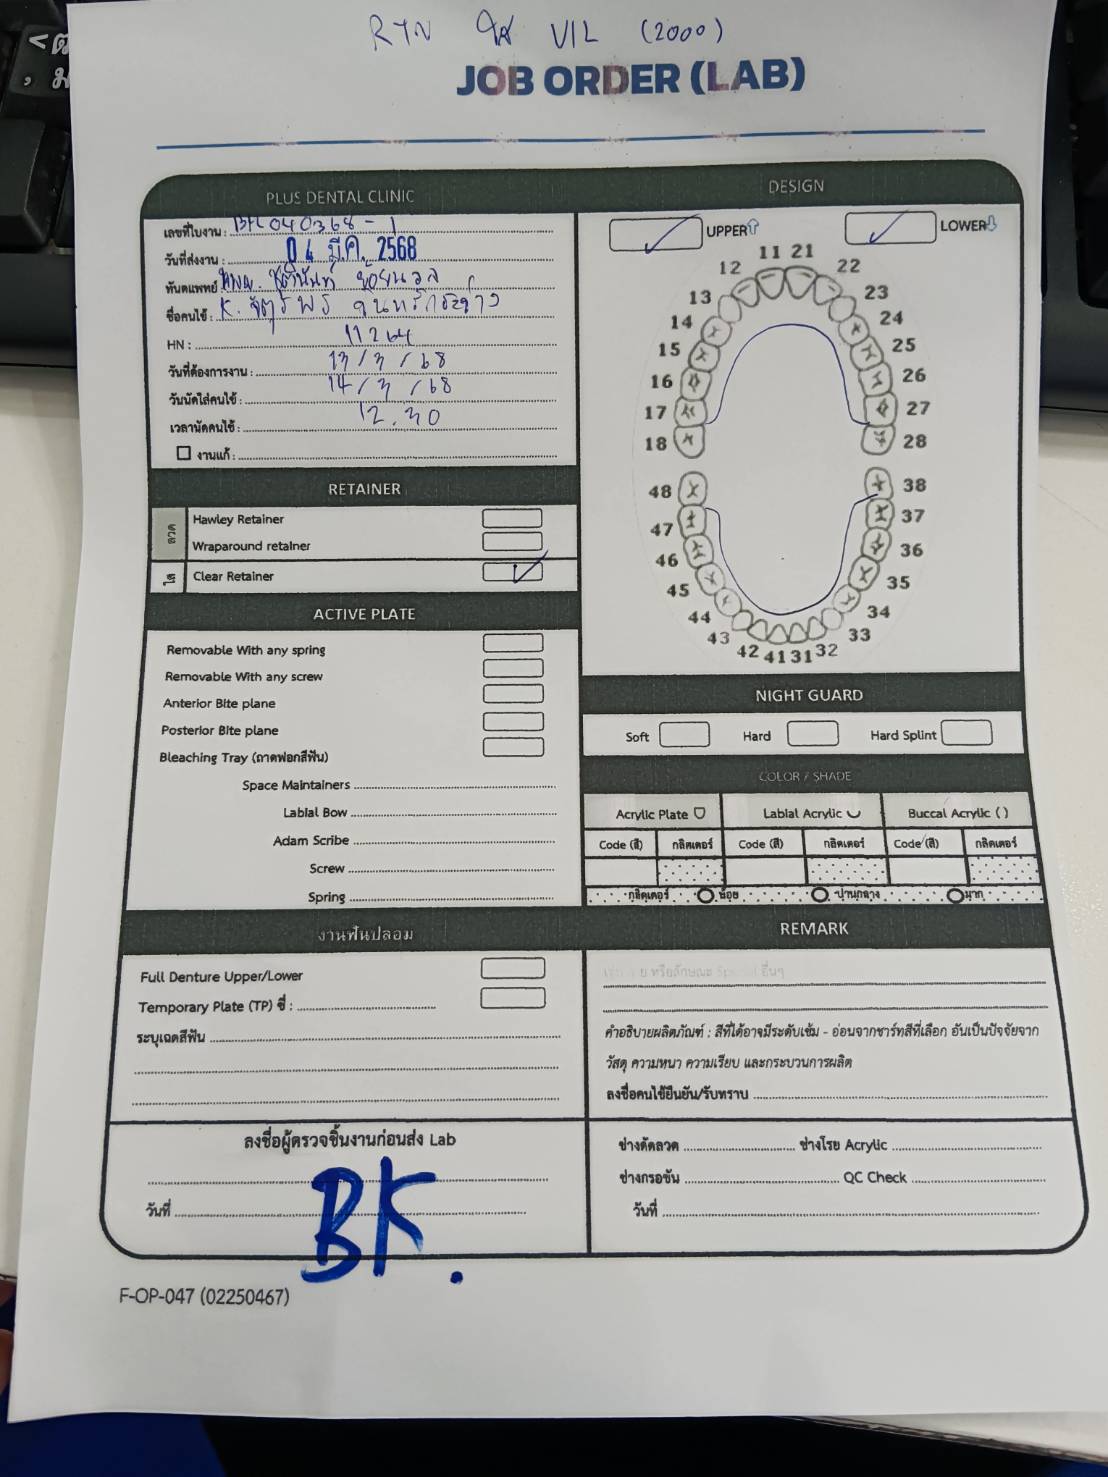 RTN ใส U/L (2000)
JOB ORDER (LAB)
PLUS DENTAL CLINIC
เลขที่ใบงาน :
วันที่ส่งงาน : 04 มี.ค. 2568
ทันตแพทย์
ชื่อคนไข้ : K.
HN : 11264
วันที่ต้องการงาน : 13/3/68
วันนัดใส่คนไข้ : 14/3/68
เวลานัดคนไข้ : 12.30
งานแก้ :
RETAINER
ลวด
Hawley Retainer
Wraparound retainer
ใส
Clear Retainer
ACTIVE PLATE
Removable With any spring
Removable With any screw
Anterior Bite plane
Posterior Bite plane
Bleaching Tray (ถาดฟอกสีฟัน)
Space Maintainers
Labial Bow
Adam Scribe
Screw
Spring
งานฟันปลอม
Full Denture Upper/Lower
Temporary Plate (TP) ซี่ :
ระบุเฉดสีฟัน
ลงชื่อผู้ตรวจชิ้นงานก่อนส่ง Lab
วันที่
BK.
DESIGN
UPPER LOWER
11 21
12 22
13 23
14 24
15 25
16 26
17 27
18 28
48 38
47 37
46 36
45 35
44 34
43 33
42 41 31 32
NIGHT GUARD
Soft Hard Hard Splint
COLOR / SHADE
Acrylic Plate Labial Acrylic Buccal Acrylic ( )
Code (สี) กลิตเตอร์ Code (สี) กลิตเตอร์ Code (สี) กลิตเตอร์
กลิตเตอร์ น้อย ปานกลาง มาก
REMARK
คำอธิบายผลิตภัณฑ์ : สีที่ได้อาจมีระดับเข้ม - อ่อนจากชาร์ทสีที่เลือก อันเป็นปัจจัยจาก
วัสดุ ความหนา ความเรียบ และกระบวนการผลิต
ลงชื่อคนไข้ยืนยัน/รับทราบ
ช่างดัดลวด ช่างโรย Acrylic
ช่างกรอขัน QC Check
วันที่
F-OP-047 (02250467)